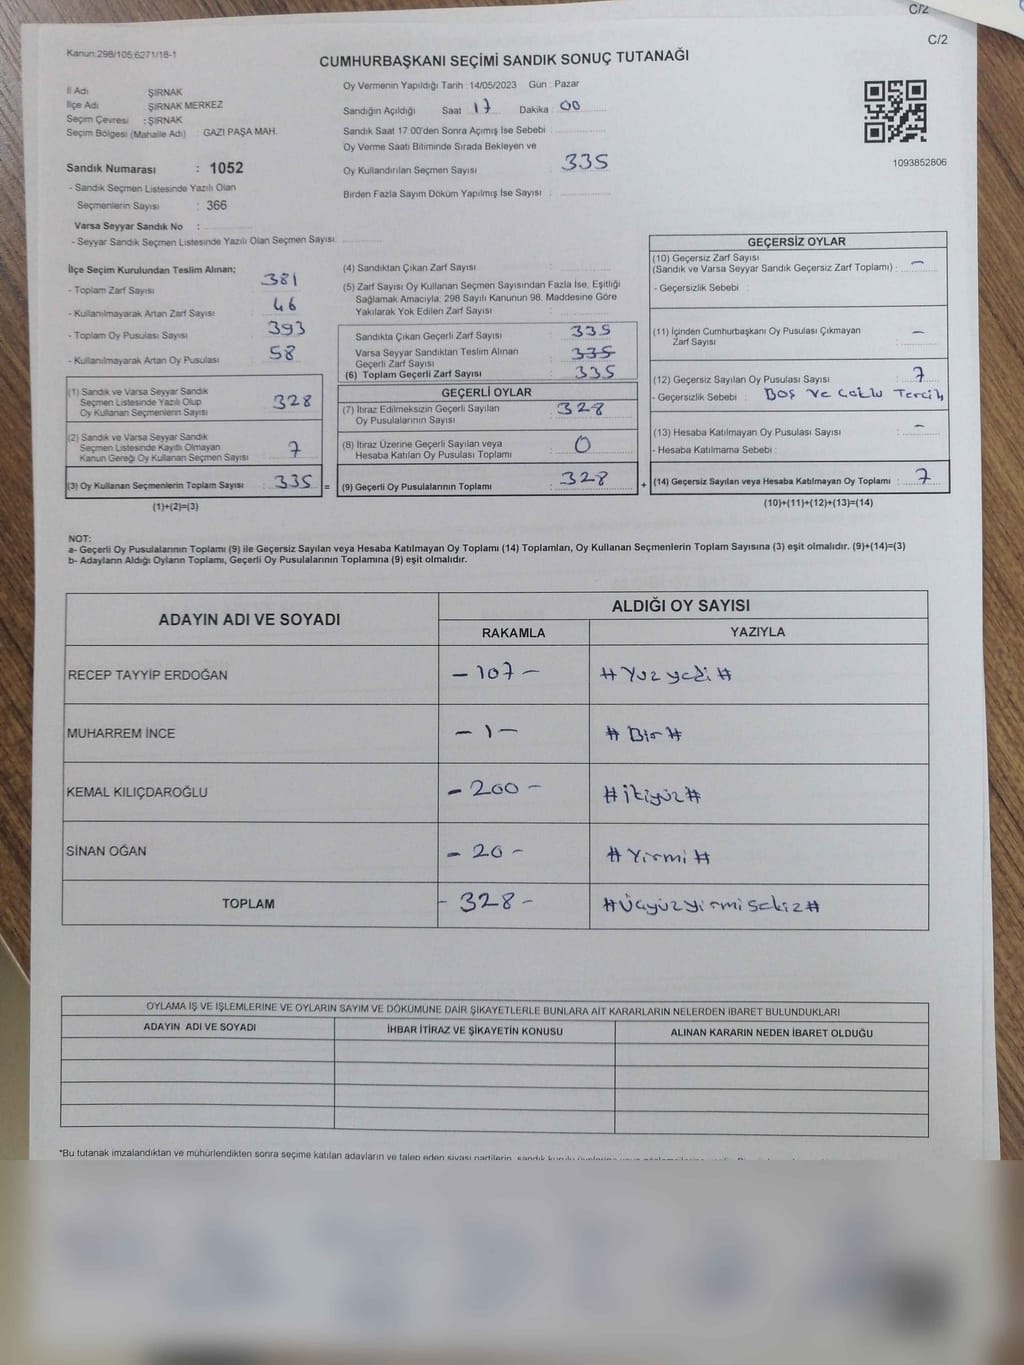 C/2
C/2
Kanun:298/105,6271/18-1
CUMHURBAŞKANI SEÇİMİ SANDIK SONUÇ TUTANAĞI
İl Adı ŞIRNAK
İlçe Adı ŞIRNAK MERKEZ
Seçim Çevresi : ŞIRNAK
Seçim Bölgesi (Mahalle Adı) : GAZİ PAŞA MAH.
Sandık Numarası : 1052
- Sandık Seçmen Listesinde Yazılı Olan
Seçmenlerin Sayısı : 366
Varsa Seyyar Sandık No :
- Seyyar Sandık Seçmen Listesinde Yazılı Olan Seçmen Sayısı:
Oy Vermenin Yapıldığı Tarih : 14/05/2023 Gün : Pazar
Sandığın Açıldığı Saat 17 Dakika 00
Sandık Saat 17.00'den Sonra Açımış İse Sebebi :
Oy Verme Saati Bitiminde Sırada Bekleyen ve
Oy Kullandırılan Seçmen Sayısı : 335
Birden Fazla Sayım Döküm Yapılmış İse Sayısı :
1093852806
İlçe Seçim Kurulundan Teslim Alınan;
- Toplam Zarf Sayısı : 381
- Kullanılmayarak Artan Zarf Sayısı : 46
- Toplam Oy Pusulası Sayısı : 393
- Kullanılmayarak Artan Oy Pusulası : 58
(1) Sandık ve Varsa Seyyar Sandık
Seçmen Listesinde Yazılı Olup
Oy Kullanan Seçmenlerin Sayısı : 328
(2) Sandık ve Varsa Seyyar Sandık
Seçmen Listesinde Kayıtlı Olmayan
Kanun Gereği Oy Kullanan Seçmen Sayısı : 7
(3) Oy Kullanan Seçmenlerin Toplam Sayısı : 335 =
(1)+(2)=(3)
(4) Sandıktan Çıkan Zarf Sayısı :
(5) Zarf Sayısı Oy Kullanan Seçmen Sayısından Fazla İse, Eşitliği
Sağlamak Amacıyla, 298 Sayılı Kanunun 98. Maddesine Göre
Yakılarak Yok Edilen Zarf Sayısı :
Sandıkta Çıkan Geçerli Zarf Sayısı : 335
Varsa Seyyar Sandıktan Teslim Alınan
Geçerli Zarf Sayısı : 335
(6) Toplam Geçerli Zarf Sayısı : 335
GEÇERLİ OYLAR
(7) İtiraz Edilmeksizin Geçerli Sayılan
Oy Pusulalarının Sayısı : 328
(8) İtiraz Üzerine Geçerli Sayılan veya
Hesaba Katılan Oy Pusulası Toplamı : 0
(9) Geçerli Oy Pusulalarının Toplamı : 328 +
GEÇERSİZ OYLAR
(10) Geçersiz Zarf Sayısı
(Sandık ve Varsa Seyyar Sandık Geçersiz Zarf Toplamı) : -
- Geçersizlik Sebebi :
(11) İçinden Cumhurbaşkanı Oy Pusulası Çıkmayan
Zarf Sayısı : -
(12) Geçersiz Sayılan Oy Pusulası Sayısı : 7
- Geçersizlik Sebebi : Boş ve Çoklu Tercih
(13) Hesaba Katılmayan Oy Pusulası Sayısı : -
- Hesaba Katılmama Sebebi :
(14) Geçersiz Sayılan veya Hesaba Katılmayan Oy Toplamı : 7
(10)+(11)+(12)+(13)=(14)
NOT:
a- Geçerli Oy Pusulalarının Toplamı (9) ile Geçersiz Sayılan veya Hesaba Katılmayan Oy Toplamı (14) Toplamları, Oy Kullanan Seçmenlerin Toplam Sayısına (3) eşit olmalıdır. (9)+(14)=(3)
b- Adayların Aldığı Oyların Toplamı, Geçerli Oy Pusulalarının Toplamına (9) eşit olmalıdır.
ADAYIN ADI VE SOYADI ALDIĞI OY SAYISI
RAKAMLA YAZIYLA
RECEP TAYYİP ERDOĞAN - 107 - # Yüz yedi #
MUHARREM İNCE - 1 - # Bir #
KEMAL KILIÇDAROĞLU - 200 - # ikiyüz #
SİNAN OĞAN - 20 - # Yirmi #
TOPLAM - 328 - # Üçyüzyirmisekiz #
OYLAMA İŞ VE İŞLEMLERİNE VE OYLARIN SAYIM VE DÖKÜMÜNE DAİR ŞİKAYETLERLE BUNLARA AİT KARARLARIN NELERDEN İBARET BULUNDUKLARI
ADAYIN ADI VE SOYADI İHBAR İTİRAZ VE ŞİKAYETİN KONUSU ALINAN KARARIN NEDEN İBARET OLDUĞU
*Bu tutanak imzalandıktan ve mühürlendikten sonra seçime katılan adayların ve talep eden siyasi partilerin, sandık kurulu